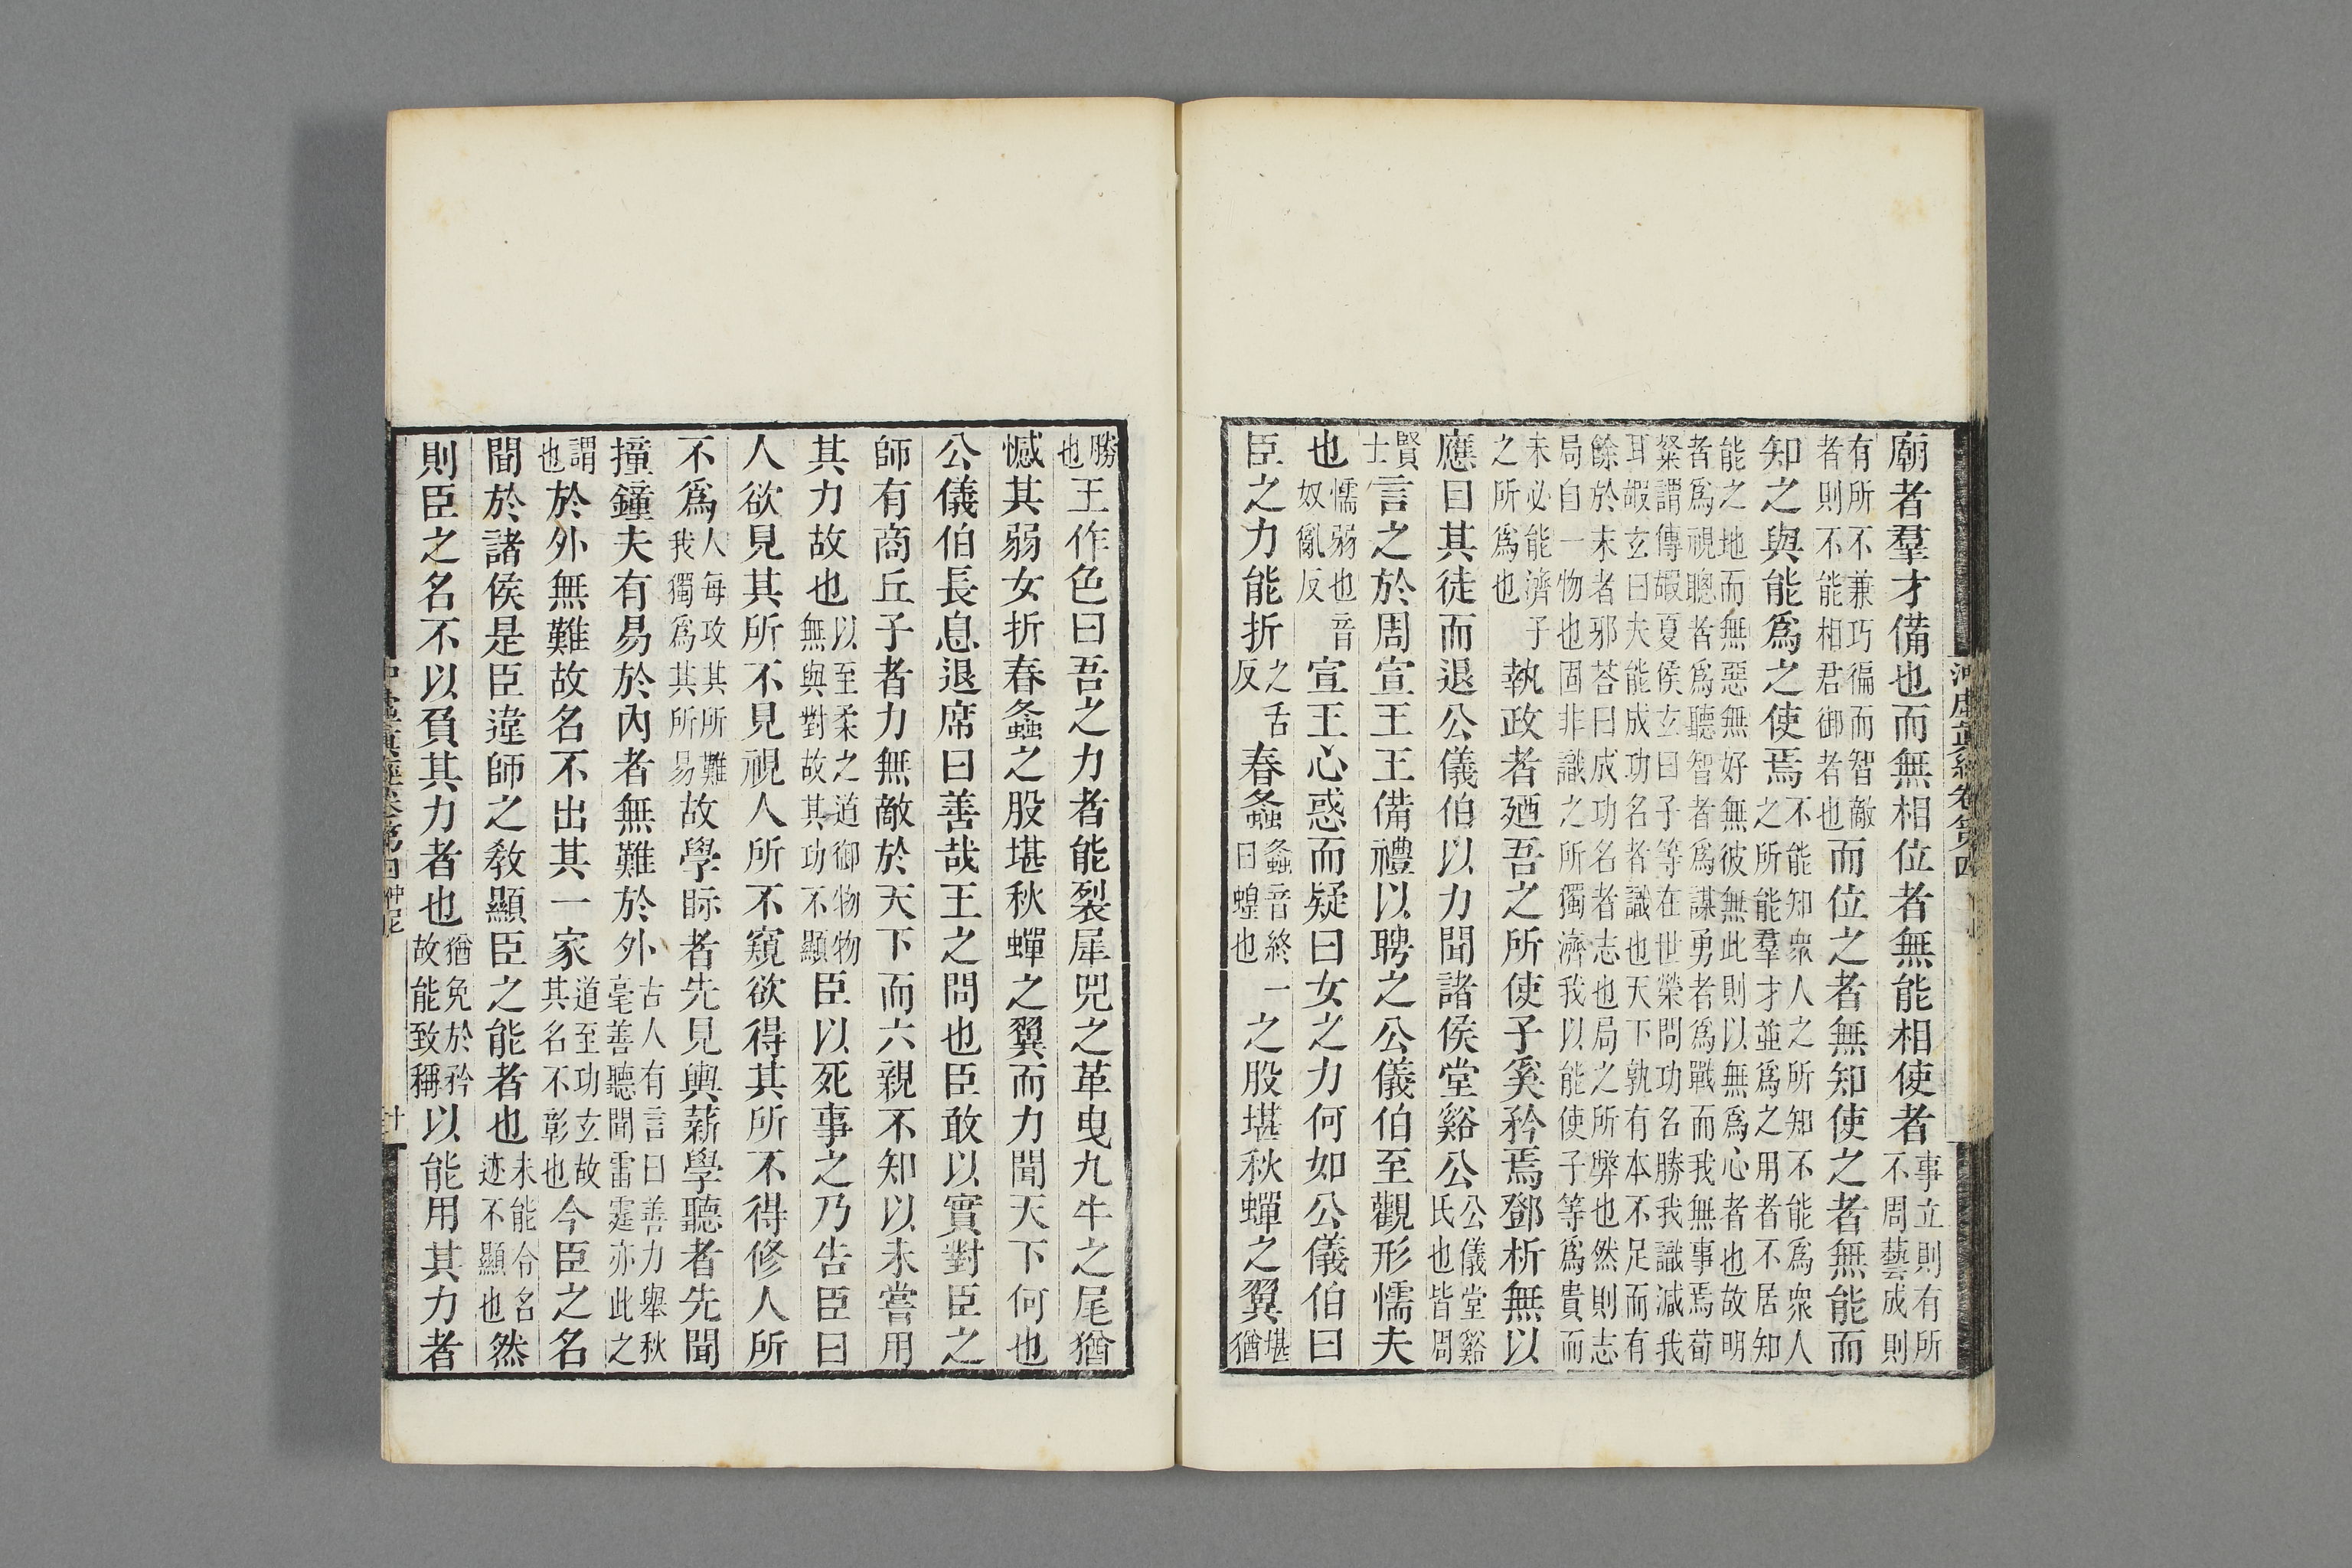 廟者羣才備也而無相位者無能相使者事立則有所不周藝成則
有所不兼巧徧而智敵者則不能相君御者也而位之者無知使之者無能而
知之與能爲之使焉不能知衆人之所知不能爲衆人之所能羣才並爲之用者不居知
能之地而無惡無好無彼無此則以無爲心者也故明者爲視聰者爲聽智者爲謀勇者爲戰而我無事焉荀
粲謂傳嘏夏侯玄曰子等在世榮問功名勝我識減我耳嘏玄曰夫能成功名者識也天下孰有本不足而有
餘於末者邪荅曰成功名者志也局之所弊也然則志局自一物也固非識之所獨濟我以能使子等爲貴而
未必能濟子之所爲也執政者廼吾之所使子奚矜焉鄧析無以
應曰其徒而退公儀伯以力聞諸侯堂谿公公儀堂谿氏也皆周
賢士言之於周宣王王備禮以聘之公儀伯至觀形懦夫
也懦弱也音奴亂反宣王心惑而疑曰女之力何如公儀伯曰
臣之力能折之舌反春螽螽音終曰蝗也一之股堪秋蟬之翼堪猶
勝也王作色曰吾之力者能裂犀兕之革曳九牛之尾猶
憾其弱女折春螽之股堪秋蟬之翼而力聞天下何也
公儀伯長息退席曰善哉王之問也臣敢以實對臣之
師有商丘子者力無敵於天下而六親不知以未嘗用
其力故也以至柔之道御物物無與對故其功不顯臣以死事之乃告臣曰
人欲見其所不見視人所不窺欲得其所不得修人所
不爲人每攻其所難我獨爲其所易故學眎者先見輿薪學聽者先聞
撞鐘夫有易於內者無難於外古人有言曰善力舉秋毫善聽聞雷霆亦此之
謂也於外無難故名不出其一家道至功玄故其名不彰也今臣之名
聞於諸侯是臣違師之敎顯臣之能者也未能令名迹不顯也然
則臣之名不以負其力者也猶免於矜故能致稱以能用其力者